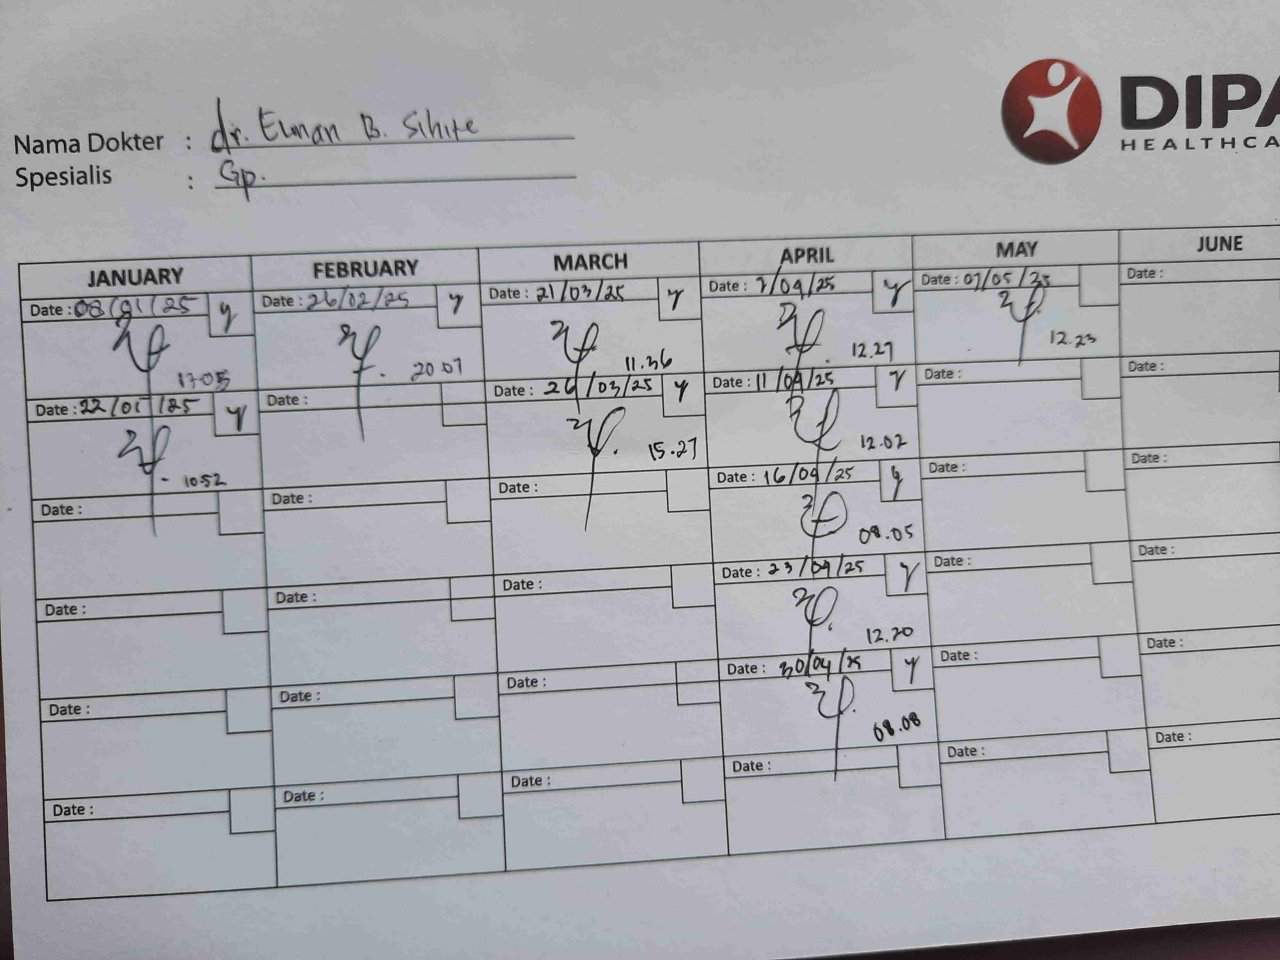 Nama Dokter : dr. Elman B. Sihite
Spesialis : Gp.
DIPA
HEALTHCA
JANUARY FEBRUARY MARCH APRIL MAY JUNE
Date : 08/01/25 y Date : 26/02/25 y Date : 21/03/25 y Date : 7/04/25 y Date : 07/05/25 Date :
17.05 20.07 11.36 12.27 12.23
Date : 22/01/25 y Date : Date : 26/03/25 y Date : 11/04/25 y Date : Date :
10.52 15.27 12.02
Date : Date : Date : Date : 16/04/25 y Date : Date :
08.05
Date : Date : Date : Date : 23/04/25 y Date : Date :
12.20
Date : Date : Date : Date : 30/04/25 y Date : Date :
08.08
Date : Date : Date : Date : Date : Date :